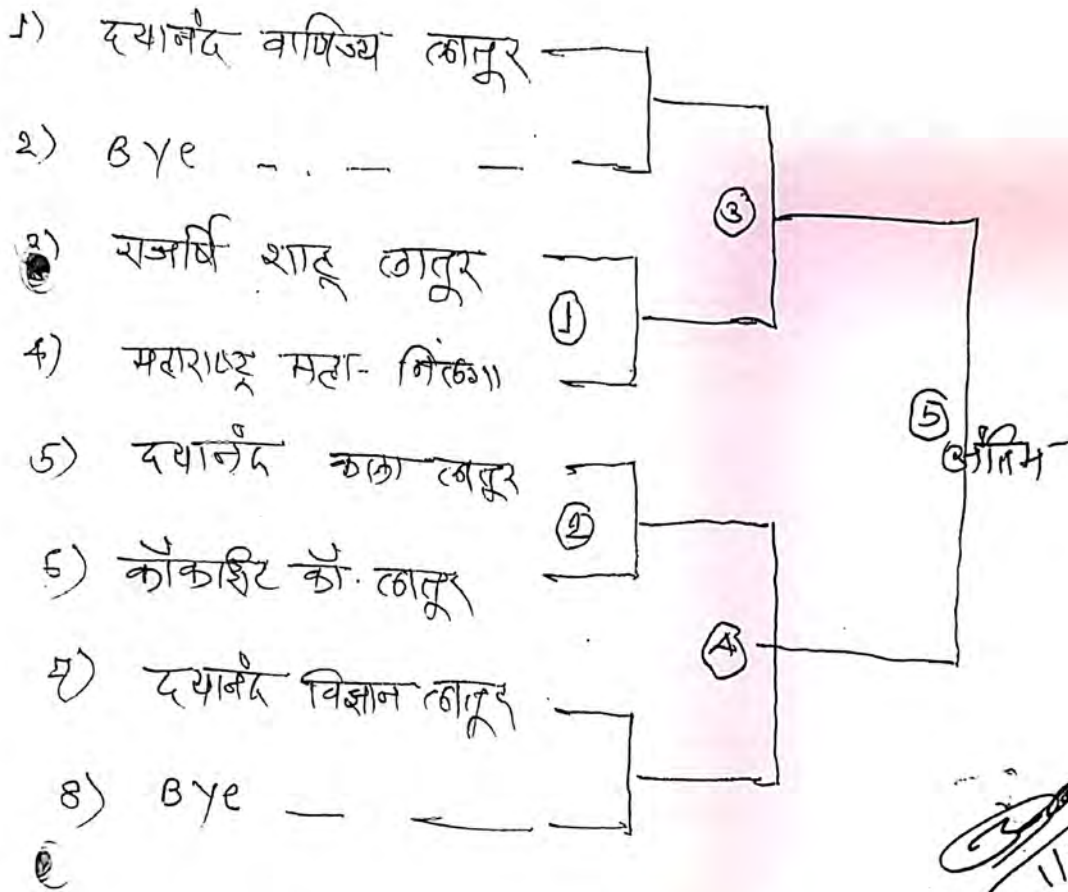 1) दयानंद वाणिज्य लातूर
2) Bye
3) राजर्षि शाहू लातूर
4) महाराष्ट्र महा- निलंगा
5) दयानंद कला लातूर
6) कॉकशिट कॉ. लातूर
7) दयानंद विज्ञान लातूर
8) Bye
③
①
⑤
अंतिम
②
④
11